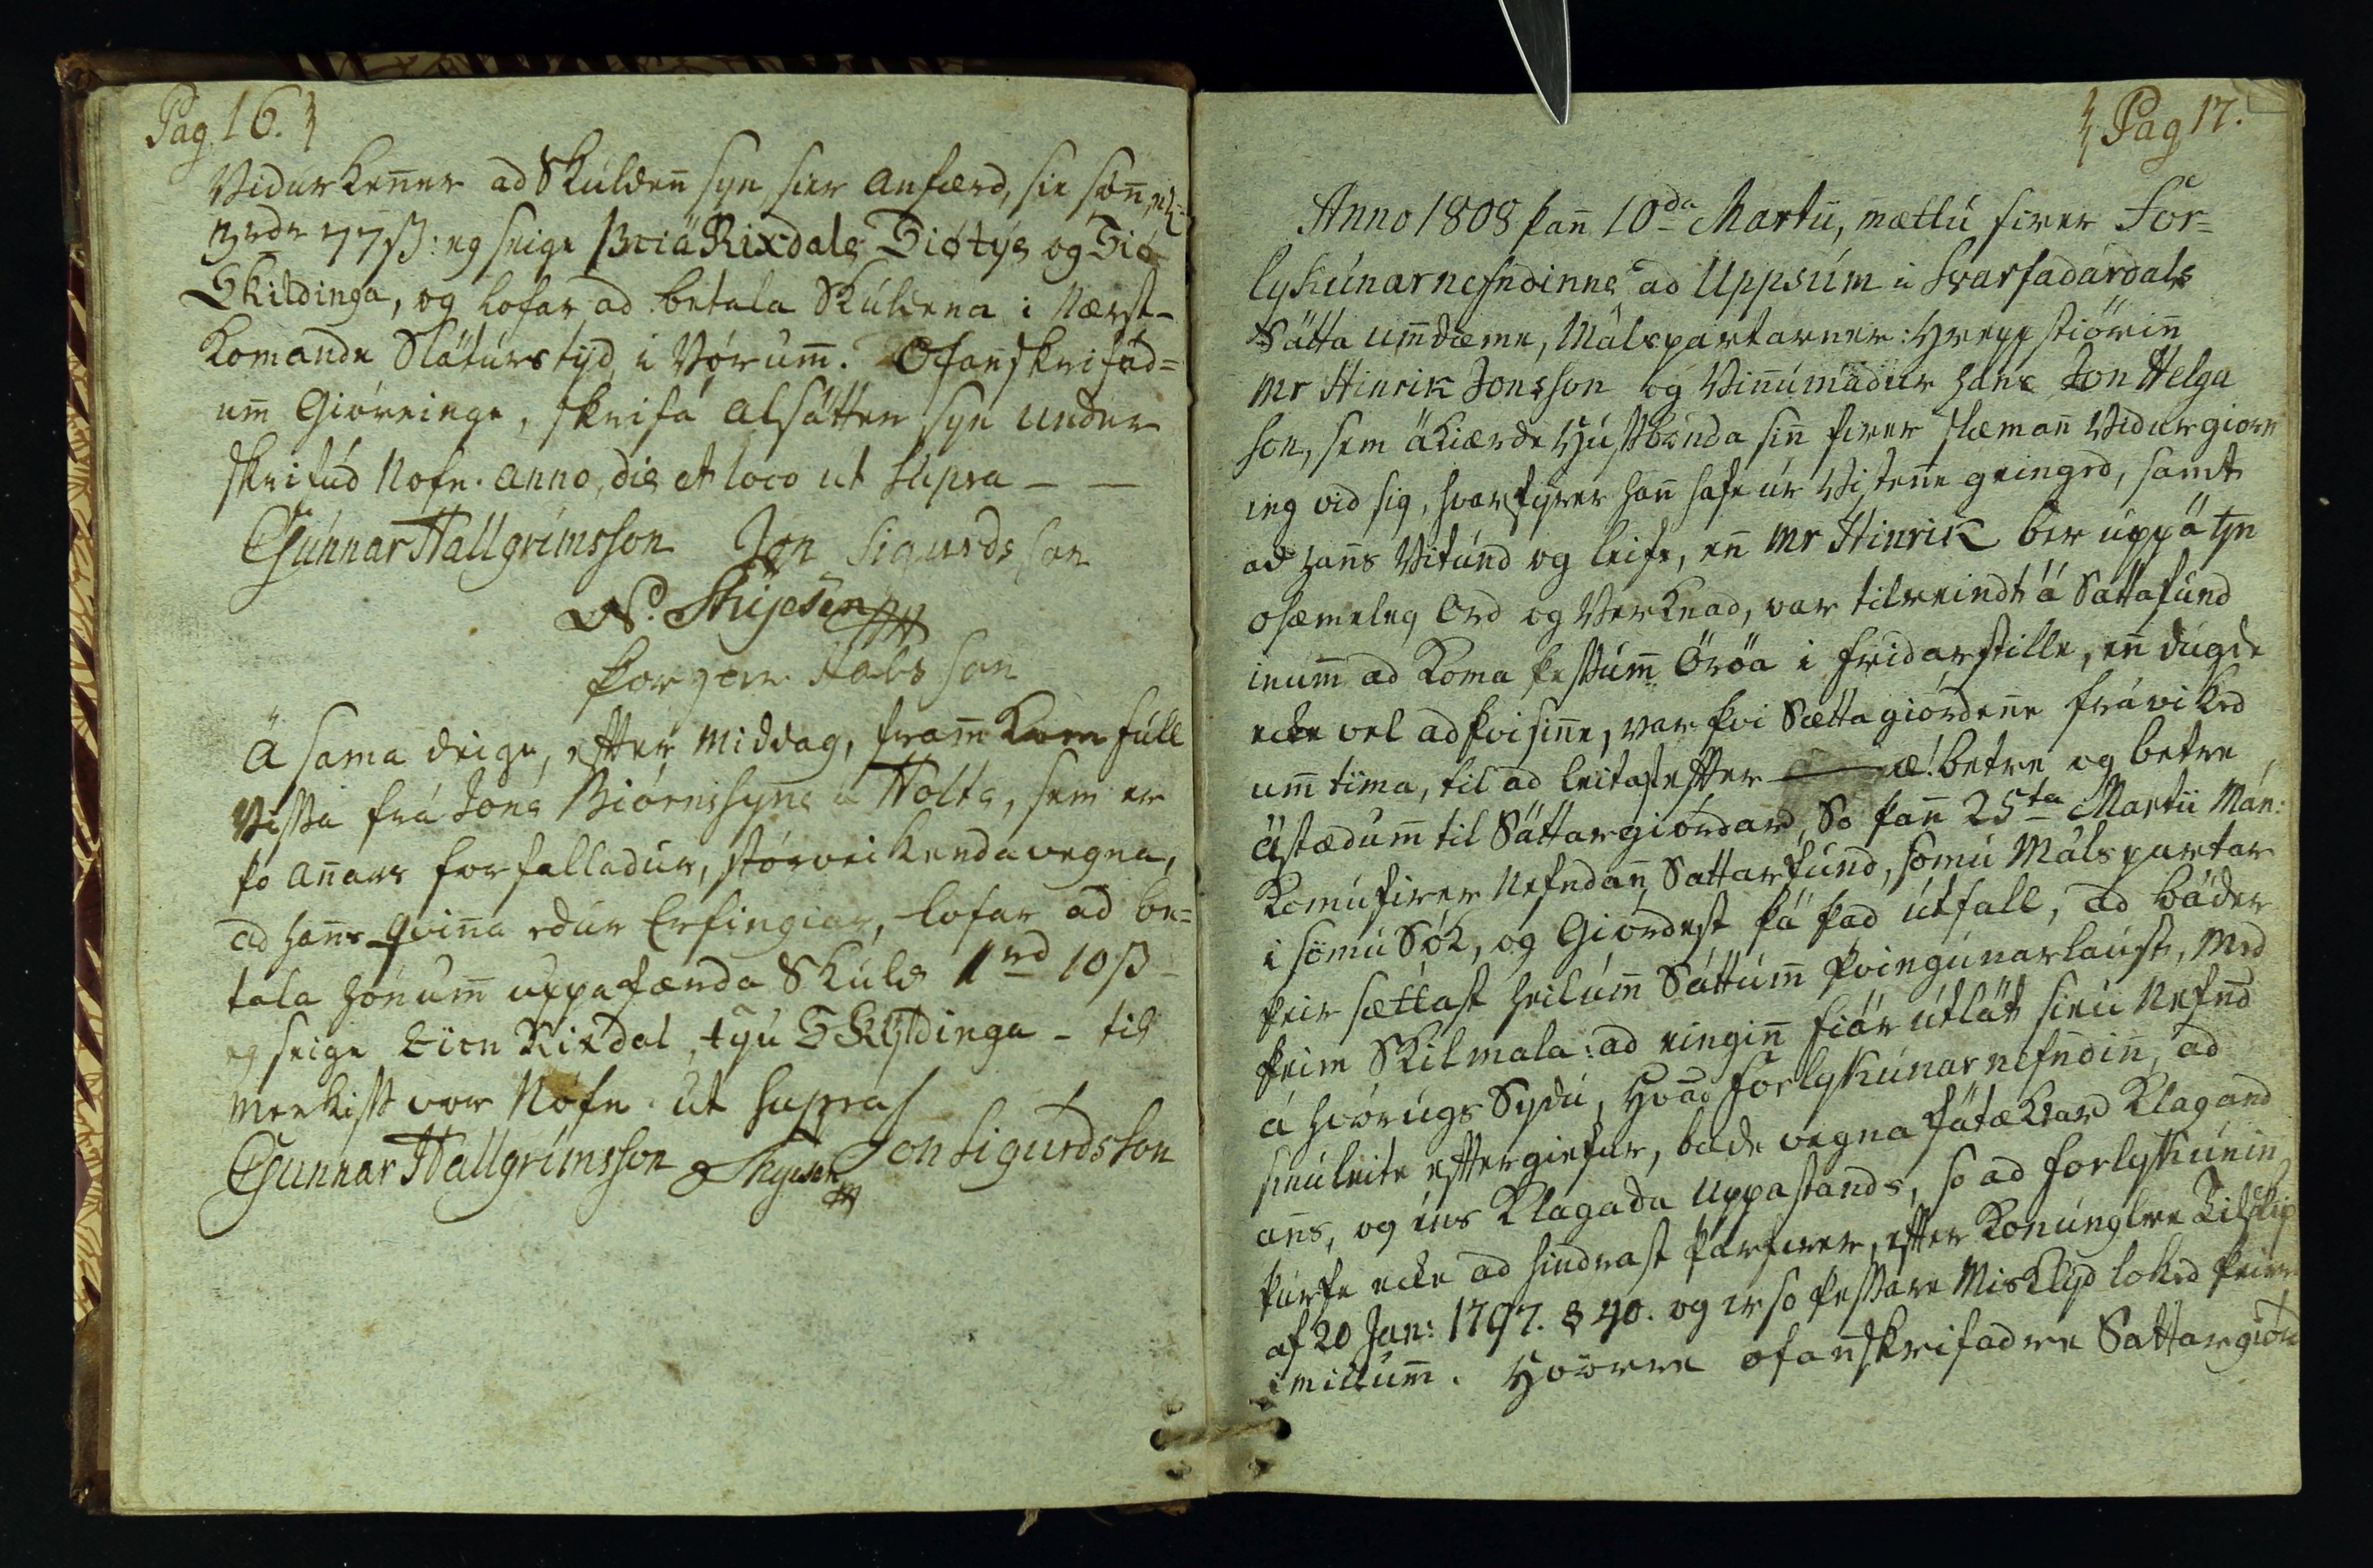 Pag 16.
Vidurkenner ad Skuldenn syn sier anfærd, sie sönn, nl:
3rdr 77ß: eg seige Þriä Rixdale Siötýe og Siö
Skildinga, og lofar ad betala Skuldena i Nærst-
komande Sláturstýd i Vörum̄. Ofanskrifud=
um̄ Giörninge, skrifa alsätter syn under
skrifud Nöfn. anno, die et loco ut supra – –
Gunnar Hallgrimsson Jon Sigurdsson
Þorgeir Halsson
Ä sama deige, efter Middag, framkom full
Vissa frá Jone Biörnssyne ä Hollte, sem er
þo annars forfalladur, störveikenda vegna,
ad hanns Qvinna edur Erfingiar, lofar ad be=
tala hönum̄ uppäfærda Skuld 1rd 10ß –
eg seige Eirn Rixdal, týu Skýldinga – til
Merkist vor Nöfn. ut supra
Gunnar Hallgrimsson Jon Sigurdsson
Pag 17.
Anno 1808 þann 10da Martii, mættu firer For=
lykunarnefndinne ad Uppsum i Svarfadardals
Sätta um̄dæme, Málspartarner: Hreppstiörinn
Mr Hinrik Jonsson og Vinnumadur hans Jon Helga
son, sem äkiærde Hussbonda sinn firer slæmann Vidurgiörn
ing vid sig, hvarfyrer hann hafe ur Vistenne geinged, samt
ad hanns Vitund og leife, enn Mr Hinrik ber uppä hn
osæmeleg Ord og Verknad, var tilreindt á Sattafund
inum̄ ad koma þessum̄ Öröa i fridarstille, enn dugde
ecke vel ad þvi sinne, var þvi Sættagiördenne fráviked
um̄ tima, til ad leitast effter æ! betre og betre
ästædum̄ til Sättargiördar, So þann 25ta Martii Mán:
komu firer Nefndann Sattarfund, sömu Málspartar
i sömu Sök, og Giördest þá þad utfall, ad báder
þeir sættast heilum̄ Sáttum̄ þvingunarlaust, Med
þeim Skilmala: ad einginn fiár utlät sieu Nefnd
á hvörugs Sydu, Hvad Forlykunarnefndin, ad
sinu leite efftergiefur, bæde vegna fätæktar Klagand
ans, og ins Klagada Uppastands, so ad forlykunin
þurfe ecke ad hindrast þarfirer, effter Konunglre Tilskip
af 20 Jan: 1797. § 40. og er so þessare Misklyd loked þeirra
i millum̄. Hvörre ofanskrifadre Sattargiörd